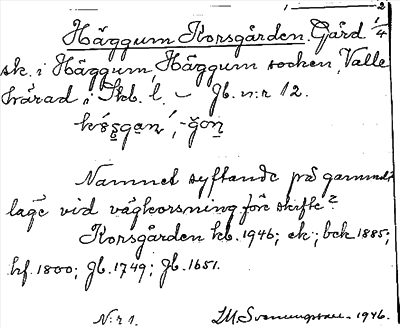 1 2
Häggum Korsgården. Gård 1/4
sk. i Häggum, Häggum socken, Valle
härad i Skb. l. — Jb. n:r 12.
Namnet syftande på gammalt
läge vid vägkorsning före skifte?
Korsgården kb. 1946; ek; bck 1885;
hf. 1800; Jb. 1749; Jb. 1651.
N:r 1. 1946.